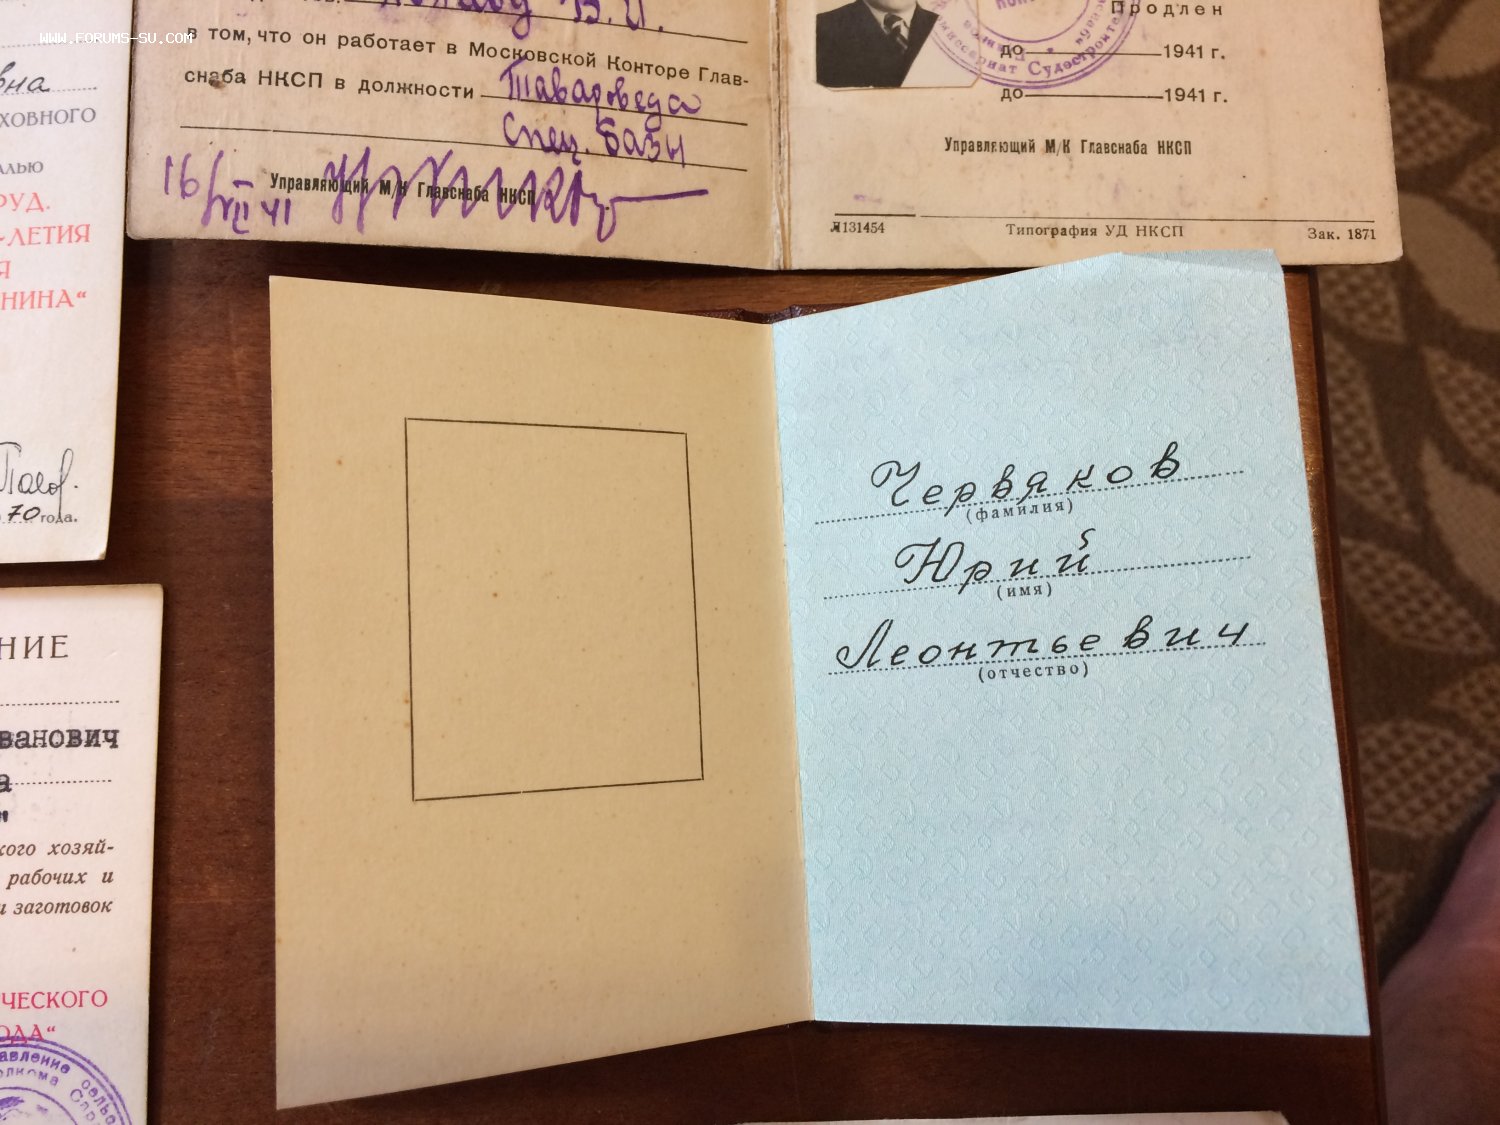 WWW.FORUMS-SU.COM
В. И.
в том, что он работает в Московской Конторе Глав-
снаба НКСП в должности Тавадоведа
Спец. Базы
Управляющий М/К Главснаба НКСП
16/VII 41
Продлен
до 1941 г.
до 1941 г.
Судостроител
Управляющий М/К Главснаба НКСП
№131454
Типография УД НКСП
Зак. 1871
вна
ХОВНОГО
АЛЬЮ
РУД.
-ЛЕТИЯ
Я
НИНА“
70 года.
НИЕ
ванович
а
"
кого хозяй-
рабочих и
и заготовок
ЧЕСКОГО
ОДА“
авление сельс
олкома
Червяков
(фамилия)
Юрий
(имя)
Леонтьевич
(отчество)